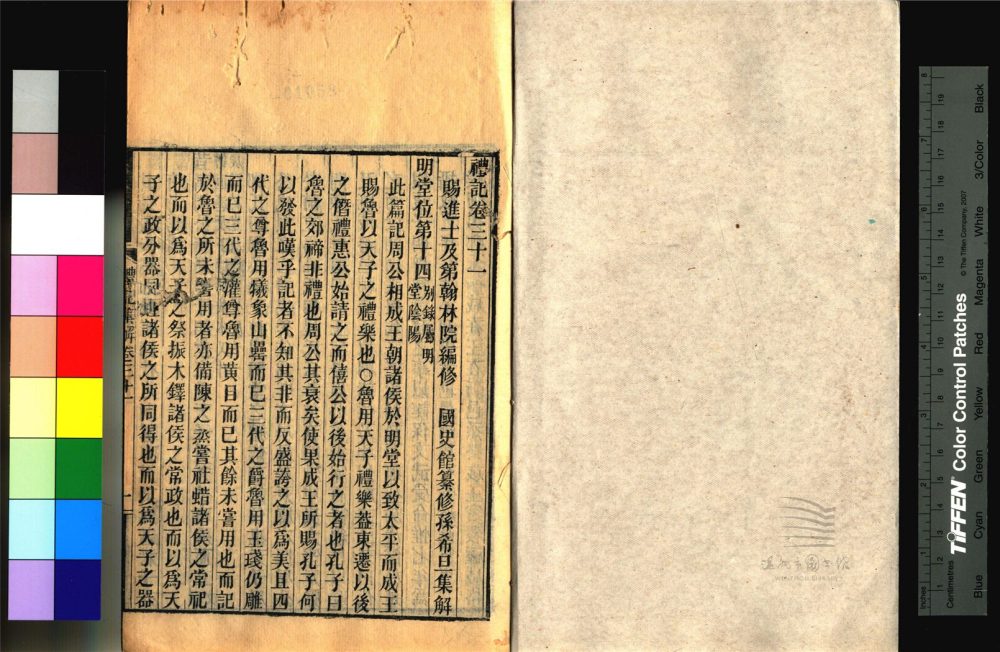 禮記卷三十一
賜進士及第翰林院編修　國史館纂修孫希旦集解
明堂位第十四別錄屬明堂陰陽
此篇記周公相成王朝諸侯於明堂以致太平而成王
賜魯以天子之禮樂也○魯用天子禮樂蓋東遷以後
之僭禮惠公始請之而僖公以後始行之者也孔子曰
魯之郊禘非禮也周公其衰矣使果成王所賜孔子何
以發此嘆乎記者不知其非而反盛誇之以爲美且四
代之尊魯用犧象山罍而已三代之爵魯用玉琖仍雕
而已三代之灌尊魯用黃目而已其餘未嘗用也而記
於魯之所未嘗用者亦備陳之烝嘗社蜡諸侯之常祀
也而以爲天子之祭振木鐸諸侯之常政也而以爲天
子之政分器同諸侯之所同得也而以爲天子之器
一
01058
温州市圖書館
WENZHOU LIBRARY
Inches
1
2
3
4
5
6
7
8
Centimetres
1
2
3
4
5
6
7
8
9
10
11
12
13
14
15
16
17
18
19
TIFFEN Color Control Patches
© The Tiffen Company, 2007
Blue
Cyan
Green
Yellow
Red
Magenta
White
3/Color
Black